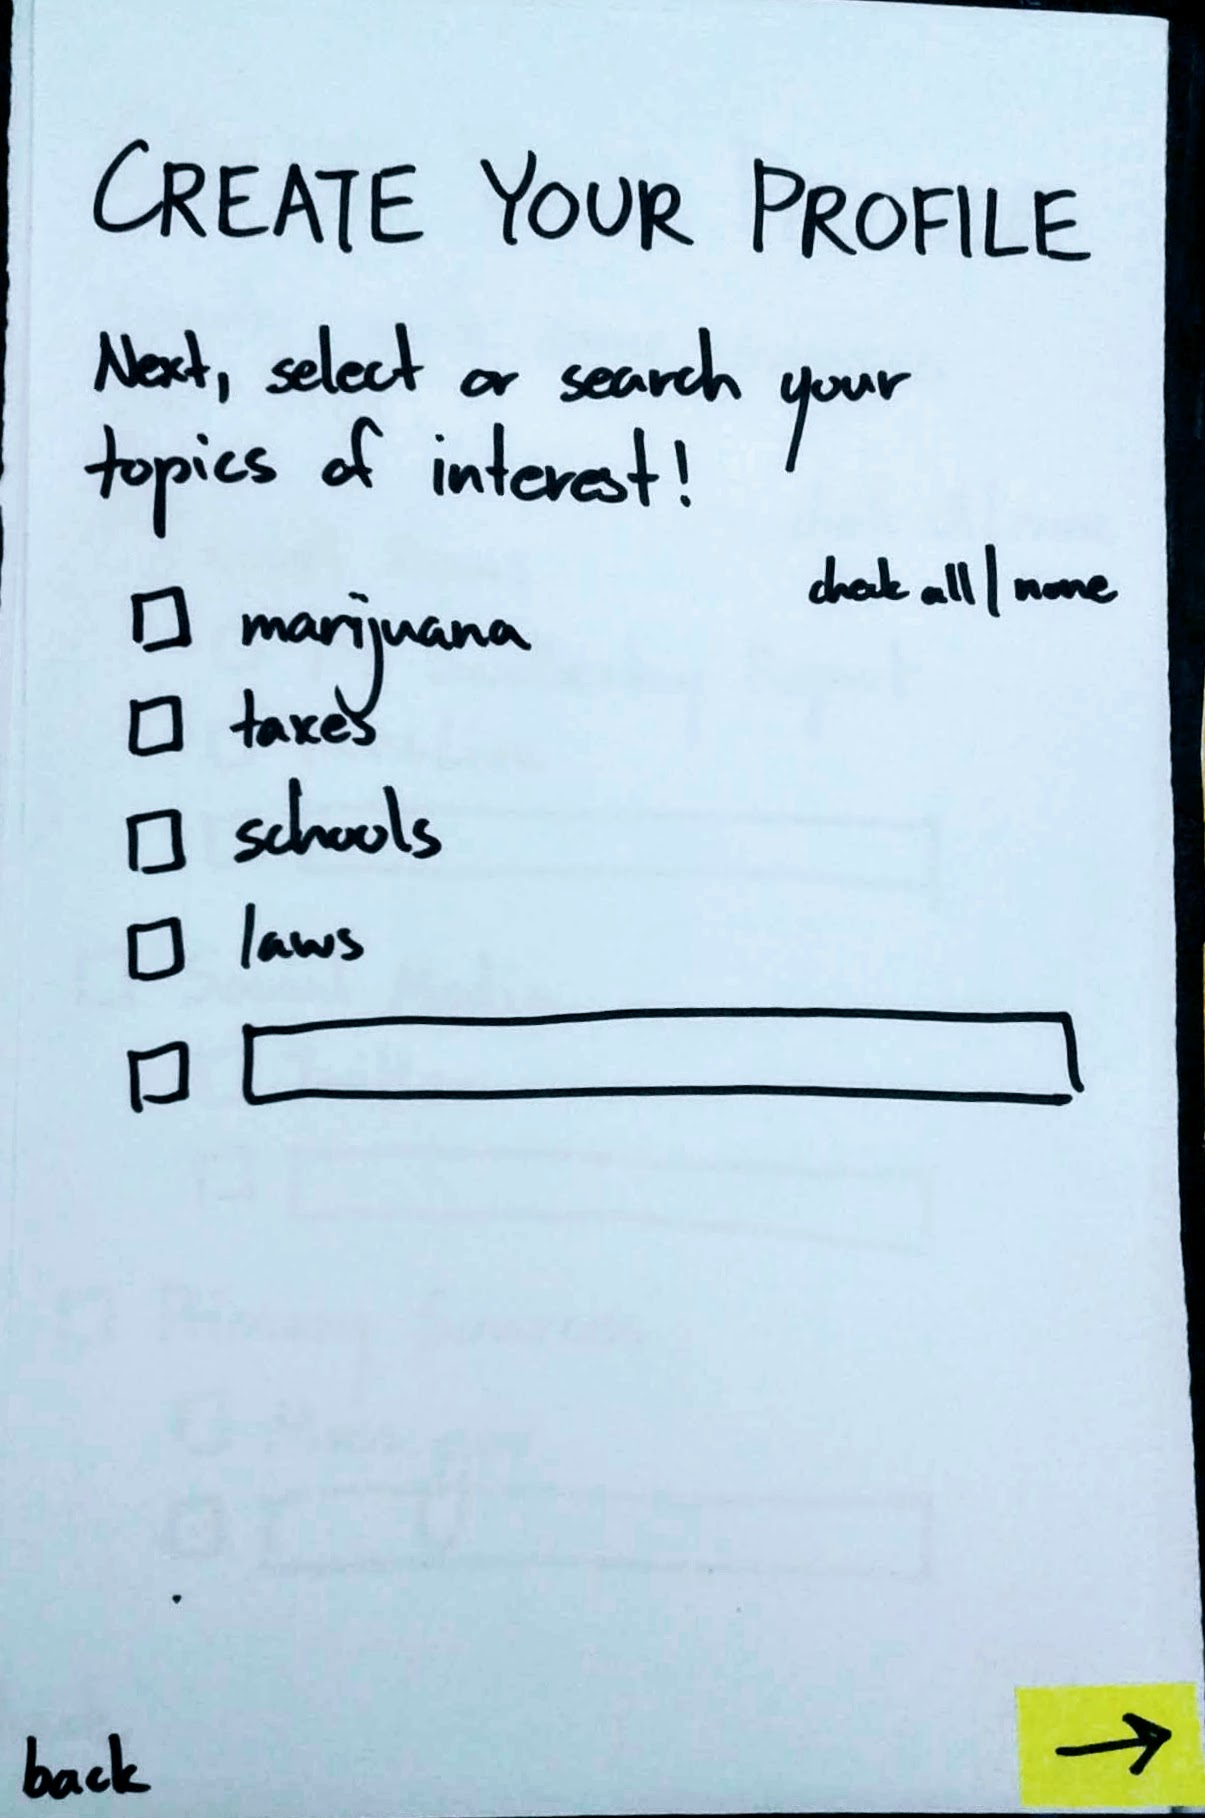 CREATE YOUR PROFILE
Next, select or search your
topics of interest!
check all | none
marijuana
taxes
schools
laws
back